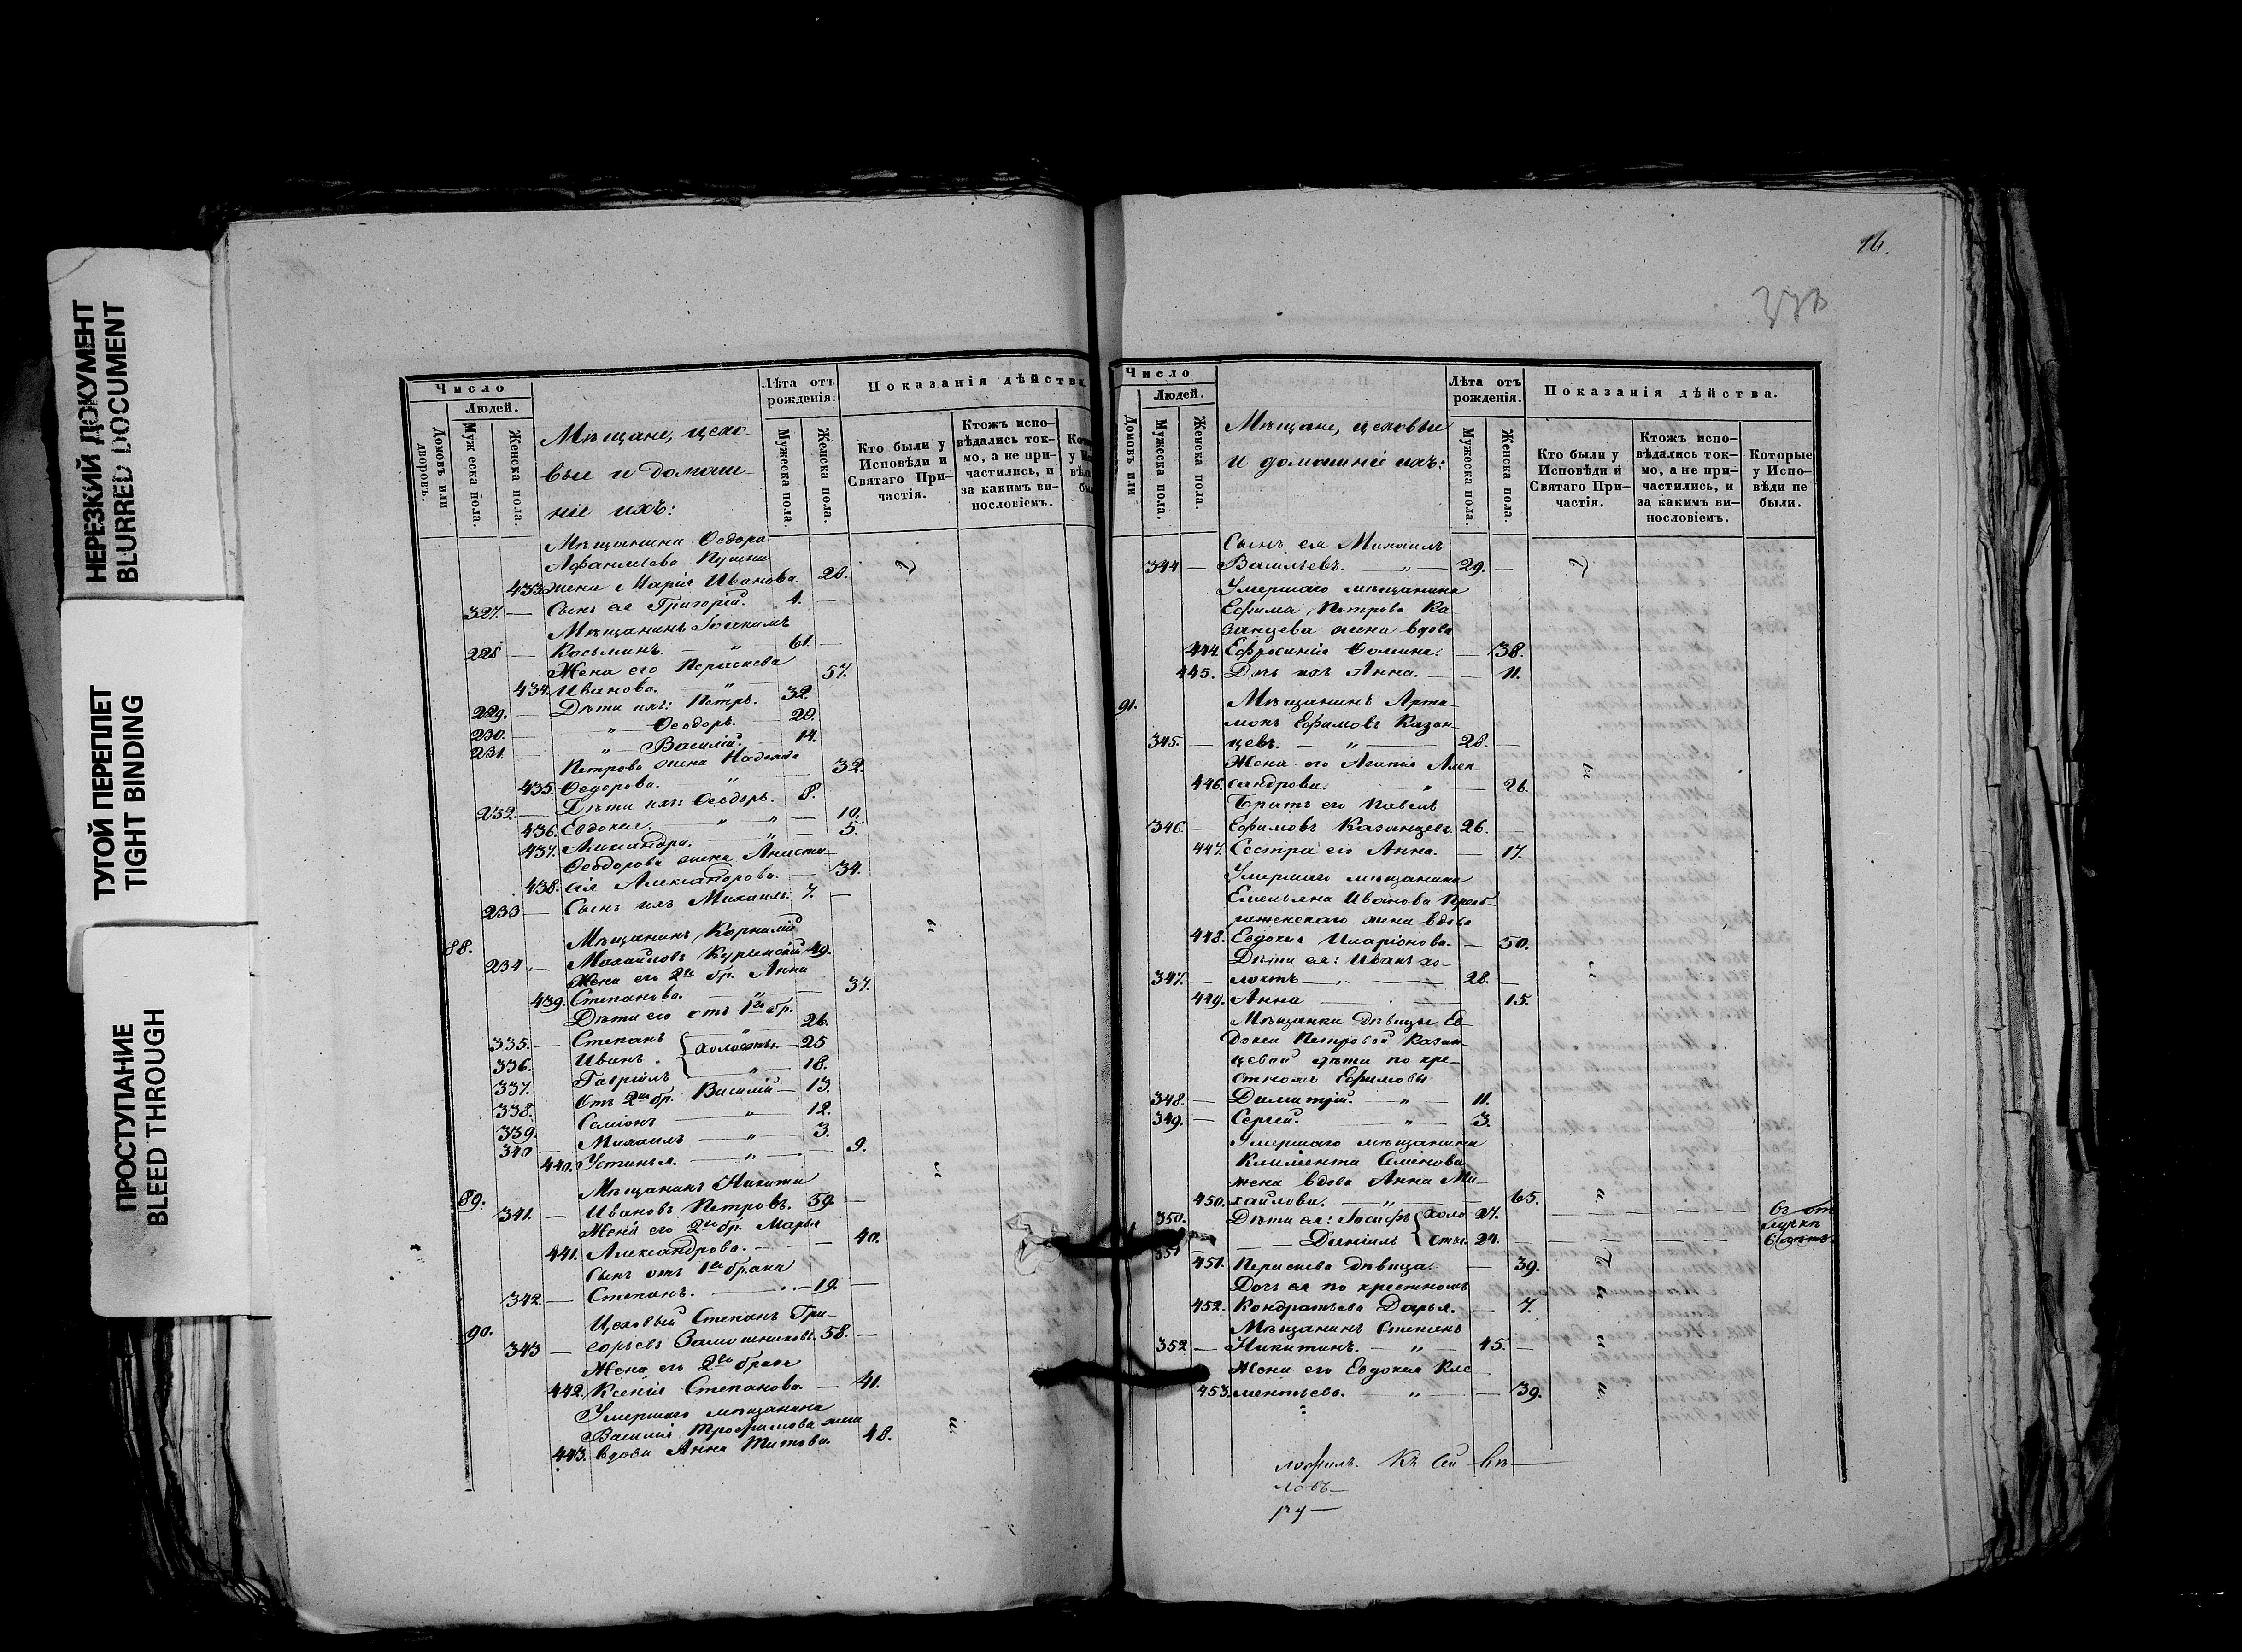 НЕРЕЗКИЙ ДОКУМЕНТ
BLURRED DOCUMENT
ТУГОЙ ПЕРЕПЛЕТ
TIGHT BINDING
ПРОСТУПАНИЕ
BLEED THROUGH
Число
Людей.
Домовъ или дворовъ.
Мужеска пола.
Женска пола.
Мѣщане, цехо-
вые и домаш-
ніе ихъ:
Лѣта отъ рожденія.
Мужеска пола.
Женска пола.
Показанія дѣйства
Кто были у Исповѣди и Святаго При-частія.
Ктожъ испо-вѣдались ток-мо, а не при-частились, и за какимъ ви-нословіемъ.
Мѣщанина Ѳедора
Афанасьева
433. жена Марія Иванова. 28.
327. — Сынъ ея Григорій. 4. —
Мѣщанинъ Іоакимъ
228 — Косьминъ. — „ — 61. —
Жена его Параскева
434. Иванова. 57.
229. — Дѣти ихъ: Петръ. 32.
230. — „ — Ѳеодоръ. 20.
231. — „ — Василій. — 14.
Петрова жена Надежда
435. Ѳедорова. „ 32.
232. — Дѣти ихъ: Ѳеодоръ. 8.
436. Евдокія. „ „ — 10.
437. Александра. — „ — 5.
Ѳеодорова жена Анаста-
438. сія Александрова. — 34.
233 — Сынъ ихъ Михаилъ. 7. —
88. Мѣщанинъ Корнилій
234. — Михайловъ Куринскій 49.
Жена его 2го бр. Анна
439. Степанова. — „ — 37.
Дѣти его отъ 1го бр.
335. — Степанъ „ 26.
336. Иванъ. { холосты. — 25
337. Гавріилъ „ 18.
338. Отъ 2го бр. Василій — 13.
339. Семіонъ — „ — 12.
340 — Михаилъ — „ — 3.
440. Устинья. — „ — 9.
89. Мѣщанинъ Никита
341. — Ивановъ Петровъ. 59. —
Жена его 2го бр. Марья
441. Александрова. — — 40.
Сынъ отъ 1го брака
342. — Степанъ. — 19. —
90. Цеховый Степанъ Гри-
343 — горьевъ 58. —
Жена его 2го брака
442. Ксенія Степанова. — 41.
Умершаго мѣщанина
Василія Трофимова жена
443. вдова Анна Титова. 48.
16.
Число
Людей.
Домовъ или
Мужеска пола.
Женска пола.
Мѣщане, цеховые
и домашніе ихъ:
Лѣта отъ рожденія.
Мужеска пола.
Женска пола.
Показанія дѣйства.
Кто были у Исповѣди и Святаго При-частія.
Ктожъ испо-вѣдались ток-мо, а не при-частились, и за какимъ ви-нословіемъ.
Которые у Испо-вѣди не были.
Сынъ ея Михаилъ
344 — Васильевъ. — „ — 29. —
Умершаго мѣщанина
Ефима Петрова Ка-
занцева жена вдова
444. Ефросинія Фомина. — 38.
445. Дочь ихъ Анна. — — 11.
91. Мѣщанинъ Арта-
монъ Ефимовъ Казан-
345. — цевъ. — „ — 28. —
Жена его Агапія Алек-
446. сандрова. „ — 26.
Братъ его Павелъ
346. — Ефимовъ Казанцевъ. 26. —
447. Сестра его Анна. — 17.
Умершаго мѣщанина
Емельяна Иванова Преоб-
раженскаго жена вдова
448. Евдокія Иларіонова. — 50.
Дѣти ея: Иванъ хо-
347. — лостъ — „ — 28. —
449. Анна — 15.
Мѣщанки дѣвицы Ев-
докіи Петровой Казан-
цевой дѣти по кре-
стномъ Ефимовы
348. — Димитрій. — „ — 11.
349. — Сергій. — „ — 3.
Умершаго мѣщанина
Климента Семенова
жена вдова Анна Ми-
450. хайлова. — „ — 65. „
350. Дѣти ея: Іосифъ { холо- 27. — — — — въ от-
351 — — Даніилъ { сты. 24. — — — —
451. Параскева дѣвица. — 39.
Дочь ея по крестномъ
452. Кондратьева Дарья. — 7. „
Мѣщанинъ Степанъ
352 — Никитинъ. — „ — 45. — „
Жена его Евдокія Кле-
453. ментьева. „ — — 39. „